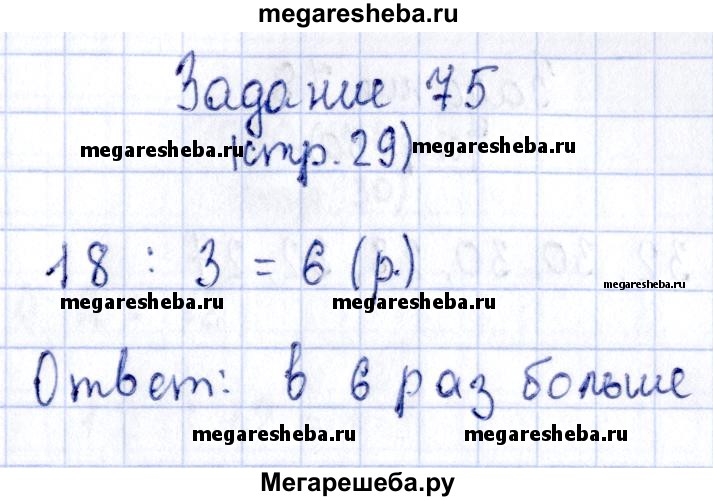 megaresheba.ru
Задание 75
megaresheba.ru (стр. 29) megaresheba.ru
18 : 3 = 6 (р.)
megaresheba.ru megaresheba.ru megaresheba.ru
Ответ: в 6 раз больше
megaresheba.ru megaresheba.ru
Мегарешеба.ру